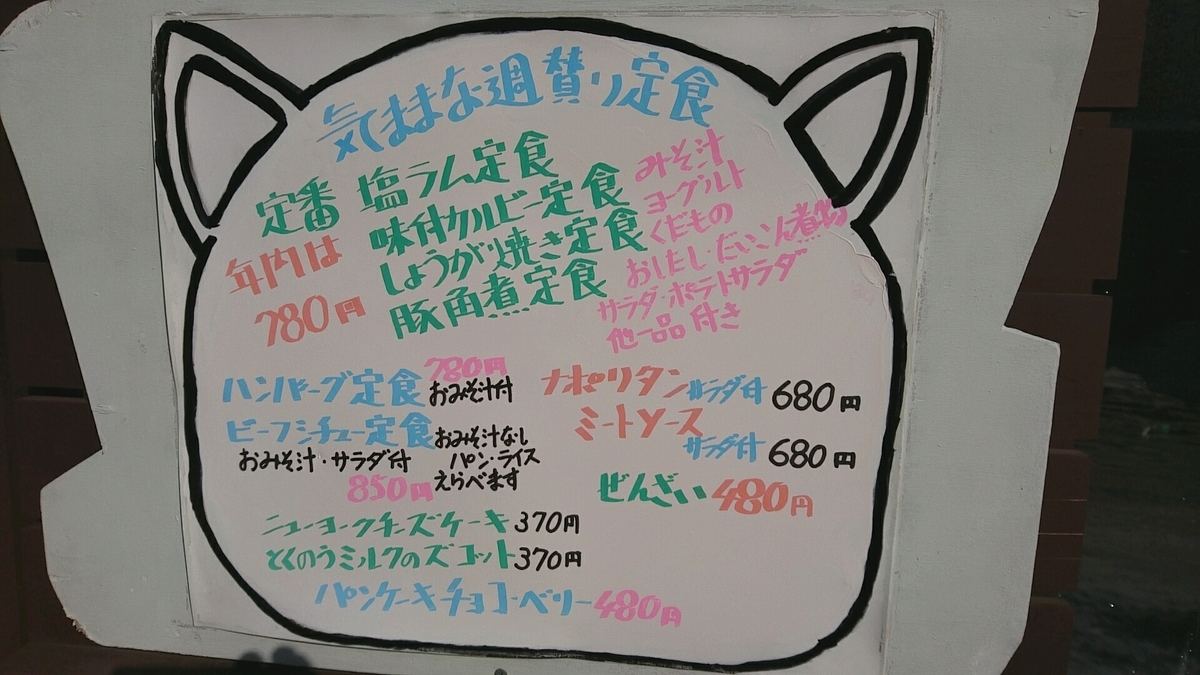 気ままな週賛り定食
定番 塩ラム定食
味付カルビー定食
しょうが焼き定食
豚角煮定食
年内は
780円
みそ汁
ヨーグルト
くだもの
おしたし・だいこん煮物
サラダ・ポテトサラダ
他一品 付き
ハンバーグ定食 780円
おみそ汁付
ビーフシチュー定食 おみそ汁なし
おみそ汁・サラダ付 パン・ライス
850円 えらべます
ナポリタン サラダ付 680円
ミートソース
サラダ付 680円
ぜんざい 480円
ニューヨークチーズケーキ 370円
とくのうミルクのズコット 370円
パンケーキチョコ・ベリー 480円